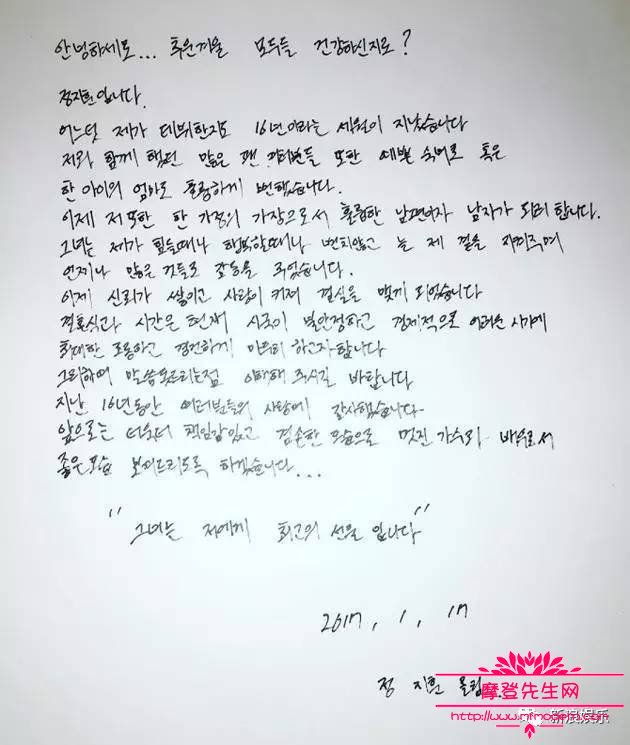 안녕하세요... 추운겨울 모두들 건강하신지요?
정지훈입니다.
어느덧 제가 데뷔한지도 16년이라는 세월이 지났습니다
저와 함께 했던 많은 팬 여러분들 또한 예쁜 숙녀로 혹은
한 아이의 엄마로 훌륭하게 변했습니다.
이제 저 또한 한 가정의 가장으로서 훌륭한 남편이자 남자가 되려 합니다.
그녀는 제가 힘들때나 행복할때나 변치않고 늘 제 곁을 지켜주며
언제나 많은 것들로 감동을 주었습니다.
이제 신뢰가 쌓이고 사랑이 커져 결실을 맺게 되었습니다
결혼식과 시간은 현재 시국이 불안정하고 경제적으로 어려운 시기에
최대한 조용하고 경건하게 마무리 하고자합니다
그리하여 말씀못드리는점 이해해 주시길 바랍니다
지난 16년동안 여러분들의 사랑에 감사했습니다
앞으로는 더욱더 책임감있고 겸손한 모습으로 멋진 가수와 배우로서
좋은모습 보여드리도록 하겠습니다...
"그녀는 저에게 최고의 선물 입니다"
2017, 1, 17
정 지훈 올림
摩登先生网
新浪娱乐